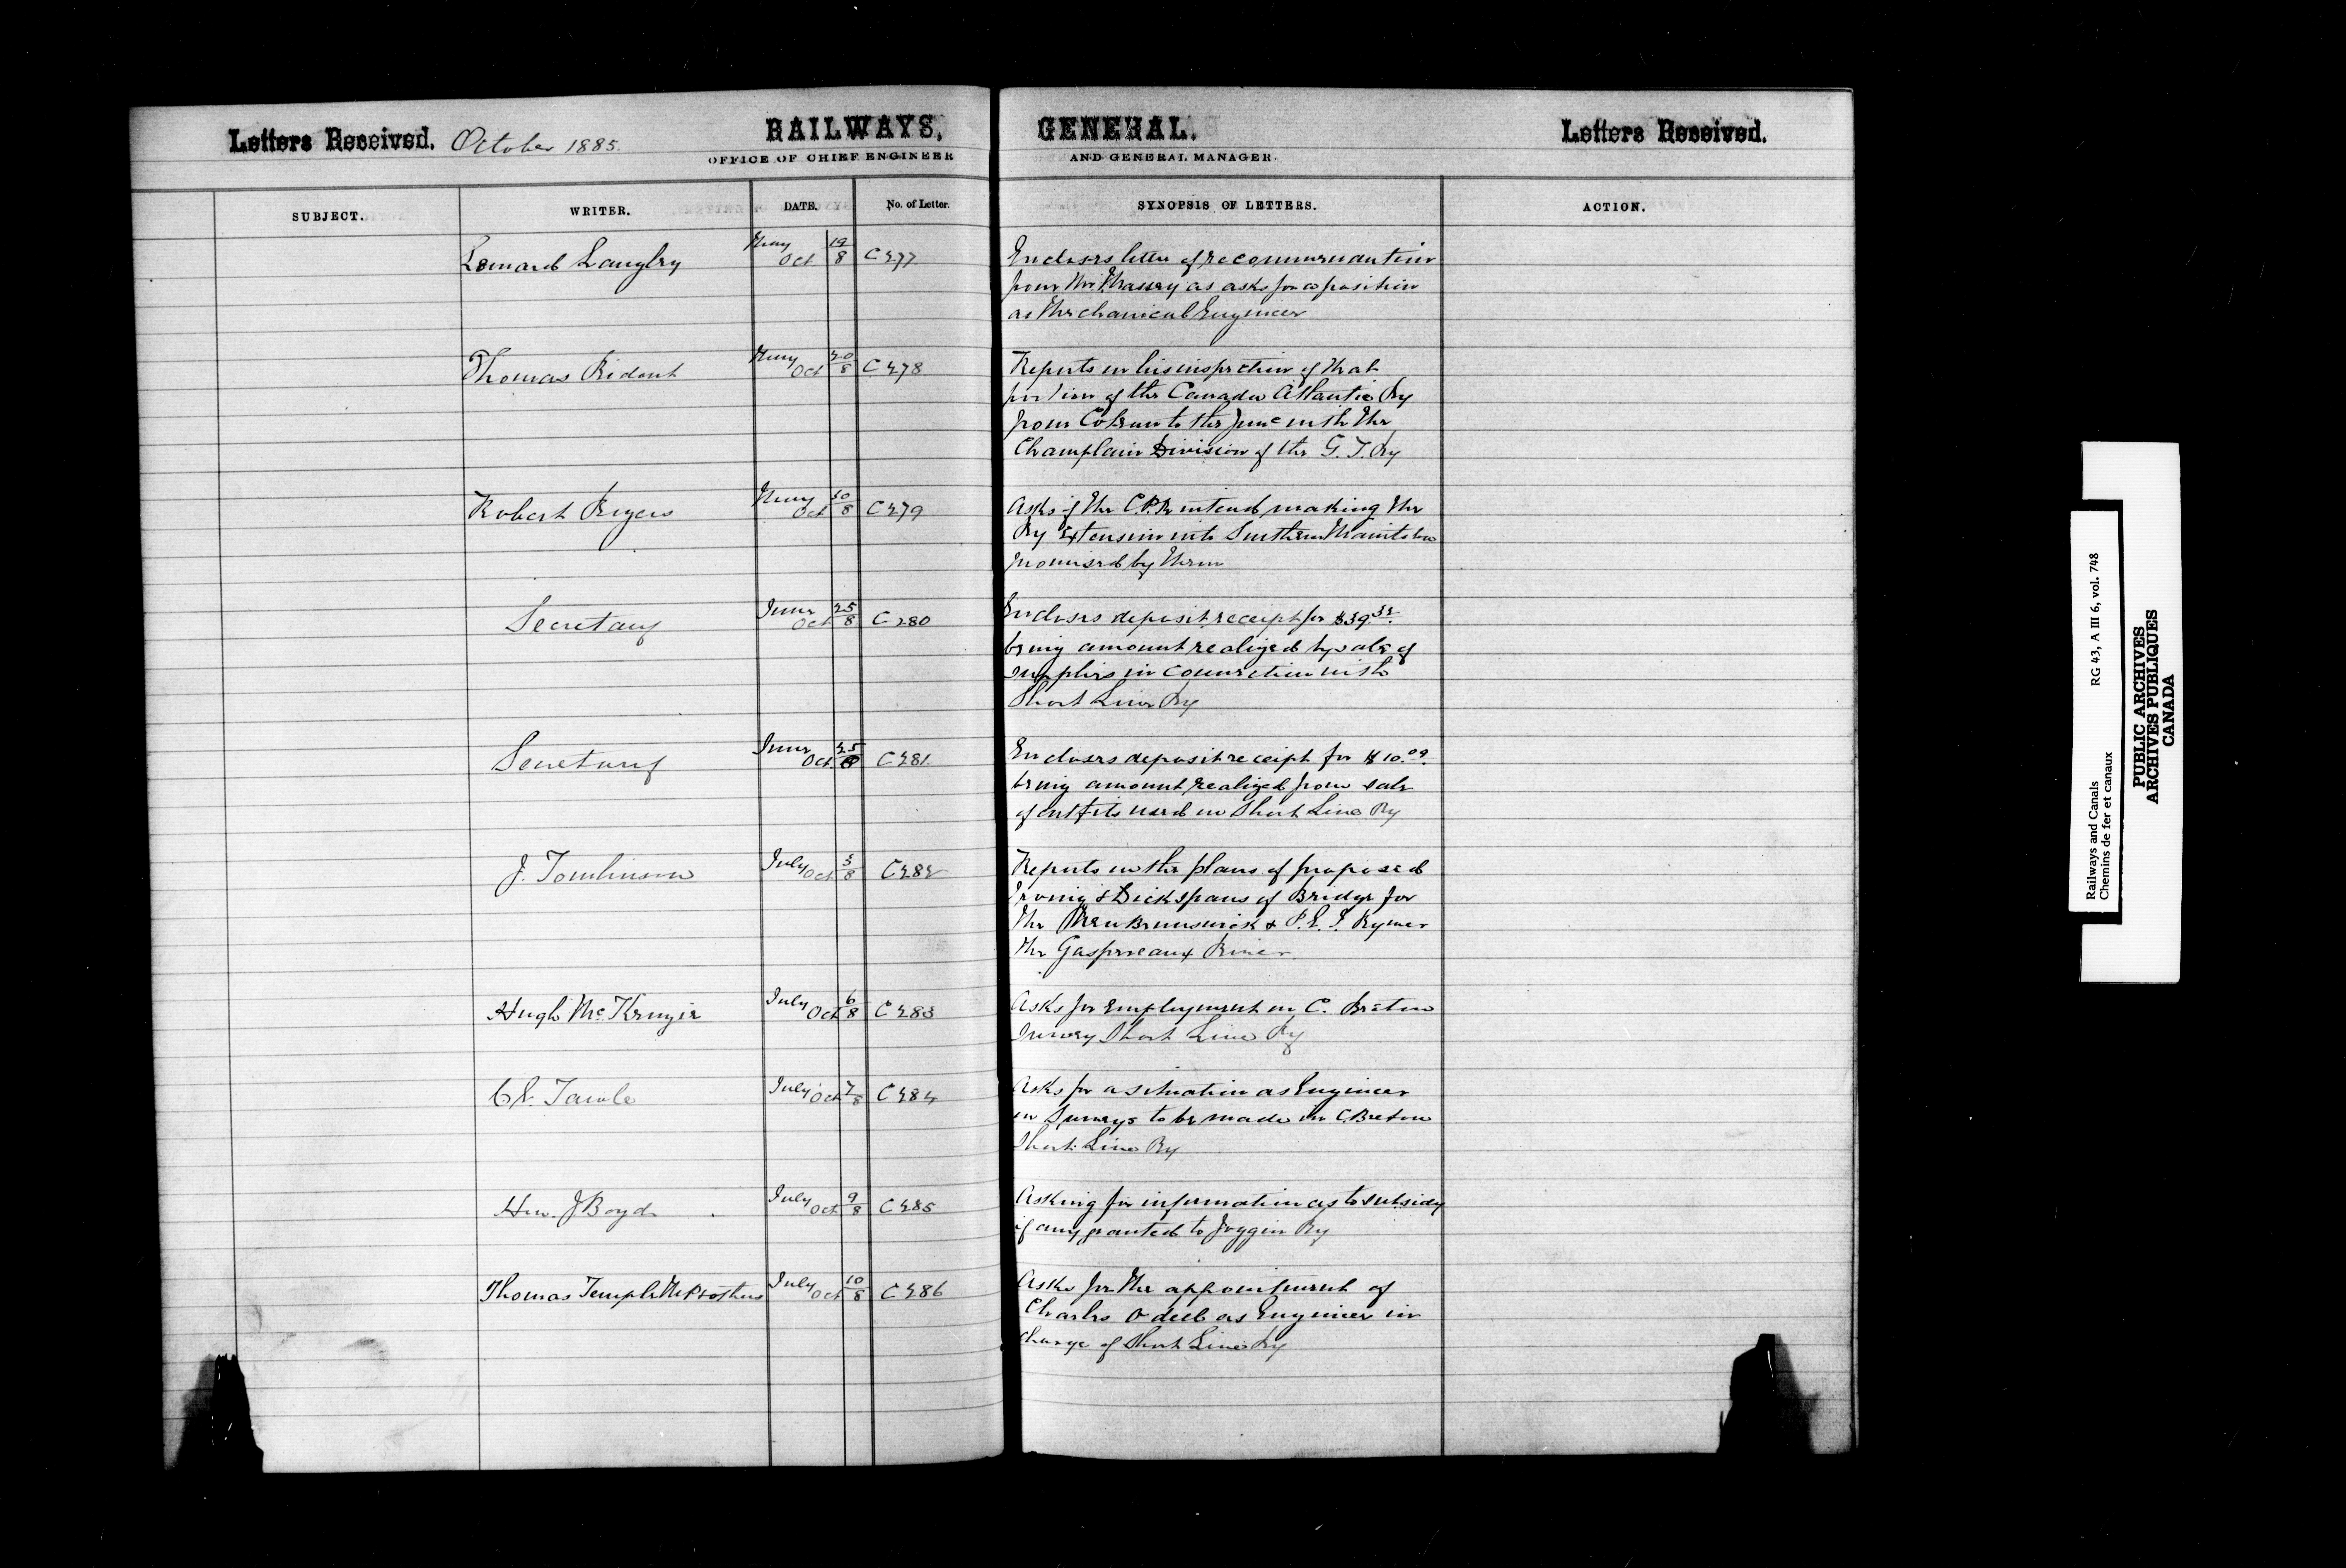 Letters Received. October 1885. RAILWAYS,
OFFICE OF CHIEF ENGINEER
SUBJECT. WRITER. DATE. No. of Letter.
Leonard Langley May 19 Oct 8 C277
Thomas Ridout May 20 Oct 8 C278
Robert Rogers May 30 Oct 8 C279
Secretary June 25 Oct 8 C280
Secretary June 25 Oct 8 C281
J. Tomlinson July 3 Oct 8 C282
Hugh McKenzie July 6 Oct 8 C283
Towle July 7 Oct 8 C284
Hon. J Boyd July 9 Oct 8 C285
Thomas Temple July 10 Oct 8 C286
GENERAL. Letters Received.
AND GENERAL MANAGER.
SYNOPSIS OF LETTERS. ACTION.
Encloses letter of recommendation
from Mr Massey as asks for a position
as Mechanical Engineer
Reports on his inspection of that
portion of the Canada Atlantic Ry
from Coteau to the Junc with the
Champlain Division of the G. T. Ry
Asks if the C.P.R intend making the
Ry Extension into Southern Manitoba
promised by them
Encloses deposit receipt for
being amount realized by sale of
supplies in connection with
Short Line Ry
Encloses deposit receipt for $10.00
being amount realized from sale
of outfits used on Short Line Ry
Reports on the plans of proposed
Irving & Dick spans of Bridge for
the New Brunswick & P. E. I. Ry over
the Gaspereaux River
Asks for Employment on C. Breton
Survey Short Line Ry
Asks for a situation as Engineer
on Surveys to be made in C. Breton
Short Line Ry
Asking for information as to subsidy
if any granted to Joggin Ry
Asks for the appointment of
Charles Odell as Engineer in
charge of Short Line Ry
Railways and Canals RG 43, A III 6, vol. 748
Chemins de fer et canaux
PUBLIC ARCHIVES
ARCHIVES PUBLIQUES
CANADA